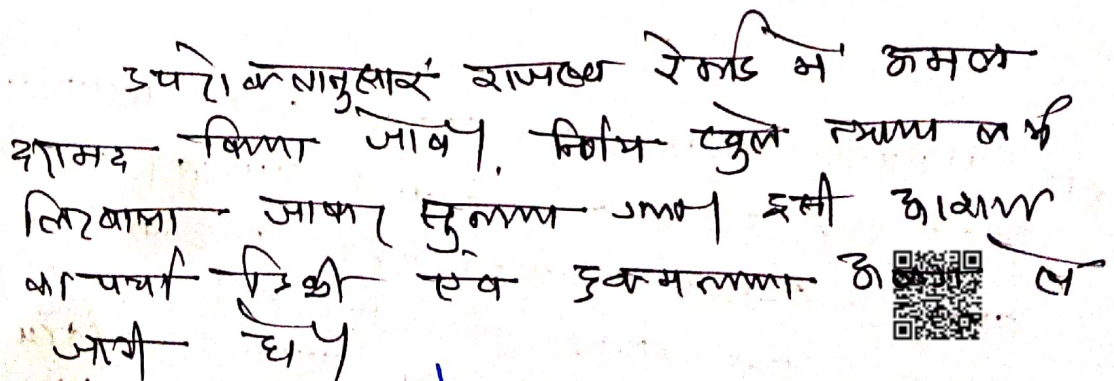 उपरोक्तानुसार राजस्व रेकार्ड में अमल
दरामद किया जावे। निर्णय खुले न्यायालय में
लिखाया जाकर सुनाया गया। इसी आशय
का पर्चा डिक्री एवं हुक्मनामा से
जारी हो।